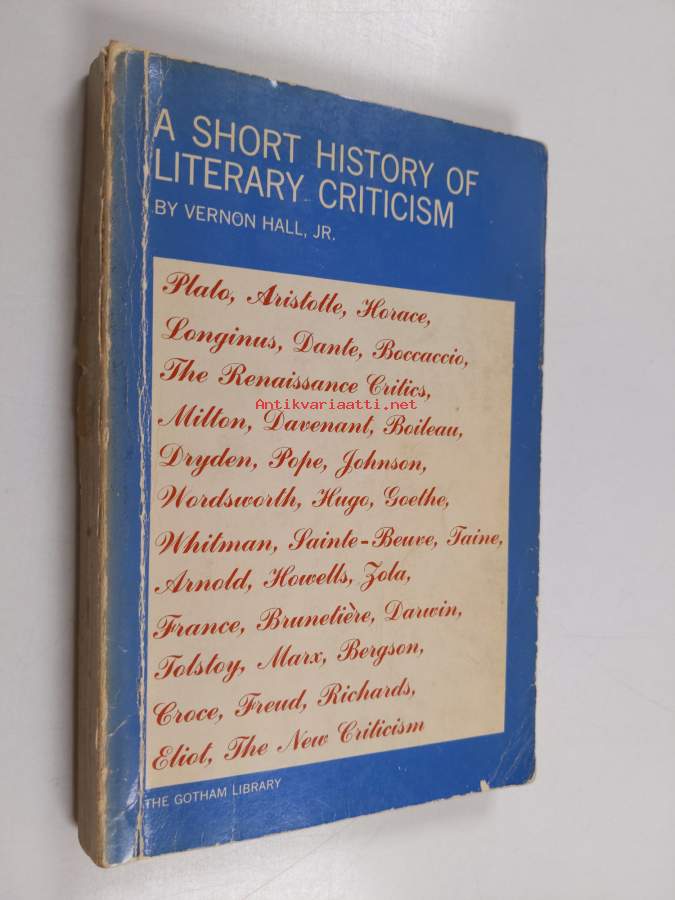 A SHORT HISTORY OF
LITERARY CRITICISM
BY VERNON HALL, JR.
Plato, Aristotle, Horace,
Longinus, Dante, Boccaccio,
The Renaissance Critics,
Antikvariaatti.net
Milton, Davenant, Boileau,
Dryden, Pope, Johnson,
Wordsworth, Hugo, Goethe,
Whitman, Sainte-Beuve, Taine,
Arnold, Howells, Zola,
France, Brunetière, Darwin,
Tolstoy, Marx, Bergson,
Croce, Freud, Richards,
Eliot, The New Criticism
THE GOTHAM LIBRARY